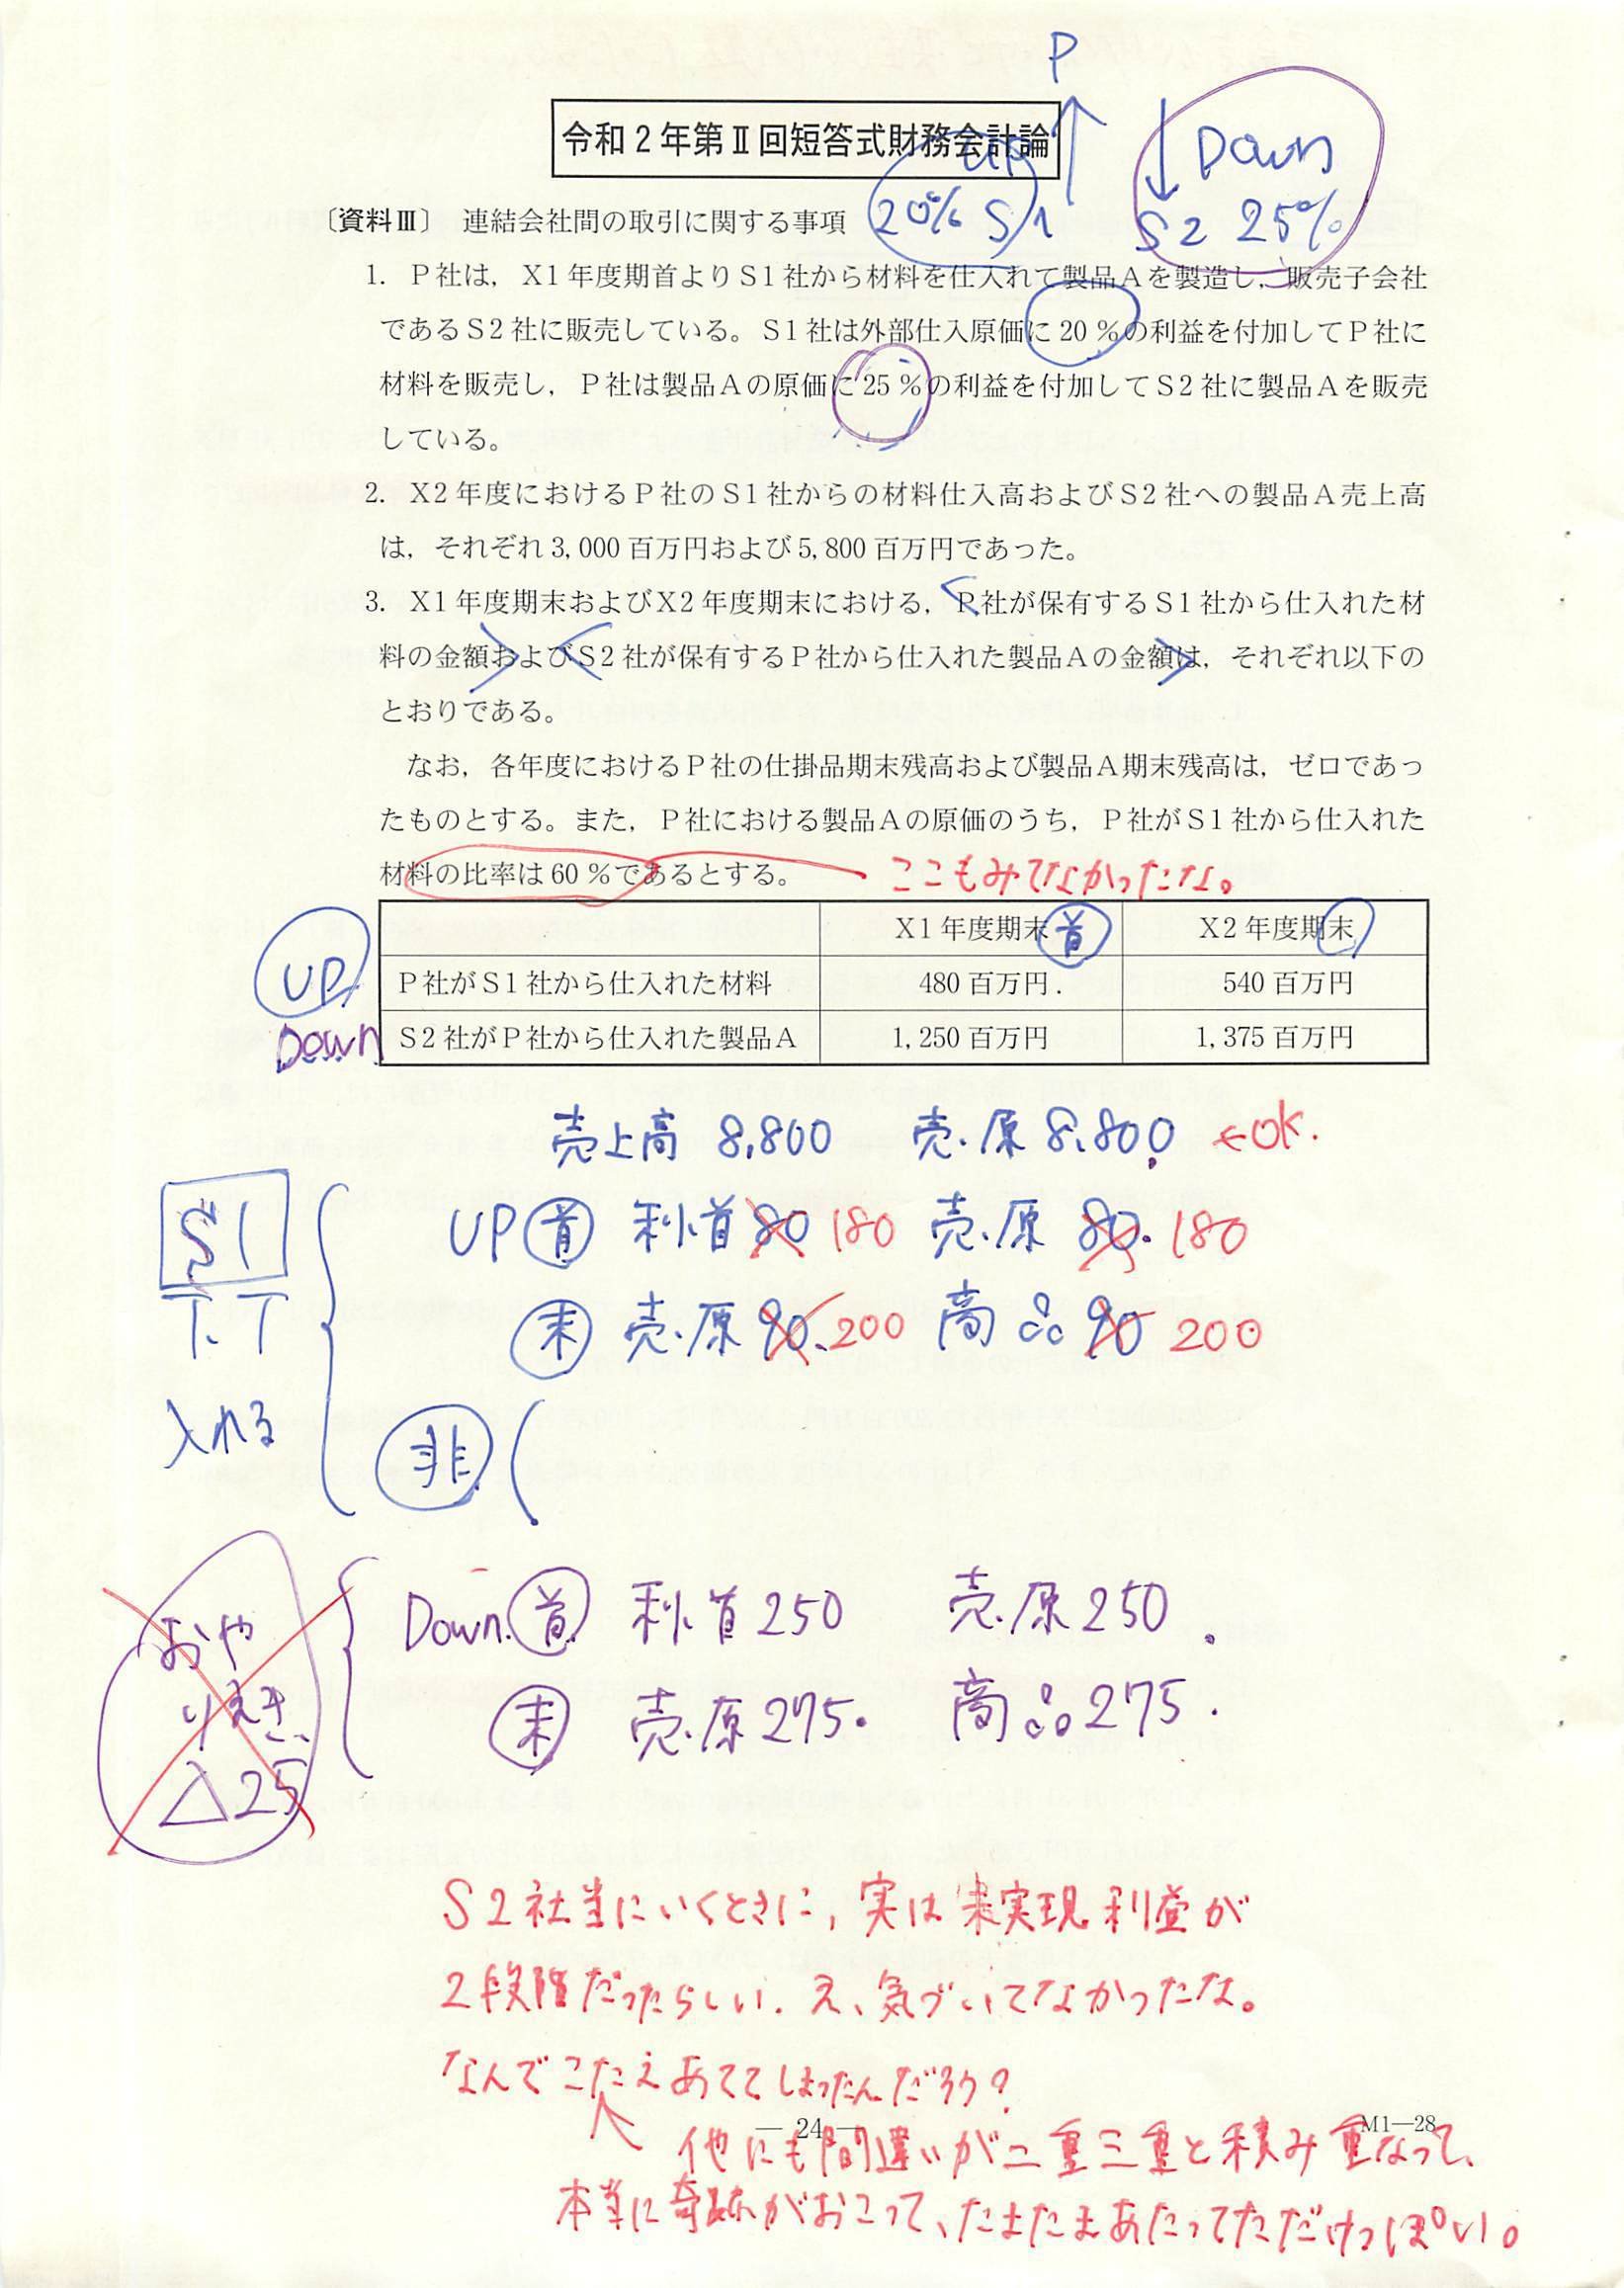 P
令和2年第Ⅱ回短答式財務会計論
UP
Down
20% S1
S2 25%
〔資料Ⅲ〕 連結会社間の取引に関する事項
1. P社は，X1年度期首よりS1社から材料を仕入れて製品Aを製造し，販売子会社
であるS2社に販売している。S1社は外部仕入原価に20％の利益を付加してP社に
材料を販売し，P社は製品Aの原価に25％の利益を付加してS2社に製品Aを販売
している。
2. X2年度におけるP社のS1社からの材料仕入高およびS2社への製品A売上高
は，それぞれ3,000百万円および5,800百万円であった。
3. X1年度期末およびX2年度期末における，P社が保有するS1社から仕入れた材
料の金額およびS2社が保有するP社から仕入れた製品Aの金額は，それぞれ以下の
とおりである。
なお，各年度におけるP社の仕掛品期末残高および製品A期末残高は，ゼロであっ
たものとする。また，P社における製品Aの原価のうち，P社がS1社から仕入れた
材料の比率は60％であるとする。 ここもみてなかったな。
X1年度期末 首 X2年度期末
UP P社がS1社から仕入れた材料 480百万円. 540百万円
Down S2社がP社から仕入れた製品A 1,250百万円 1,375百万円
売上高 8,800 売.原 8,800 ←OK.
S1
UP 首 利.首 80 180 売.原 80. 180
T.T
末 売.原 90. 200 商品 90 200
入れる
非 (
Down. 首 利.首 250 売.原 250.
おや
りえき
末 売.原 275. 商品 275.
△25
S2社当にいくときに, 実は未実現利益が
2段階だったらしい. え、気づいてなかったな。
なんでこたえあててしまったんだろう?
— 24 —
M1—28
他にも間違いが二重三重と積み重なって、
本当に奇跡がおこって、たまたまあたってただけっぽい。